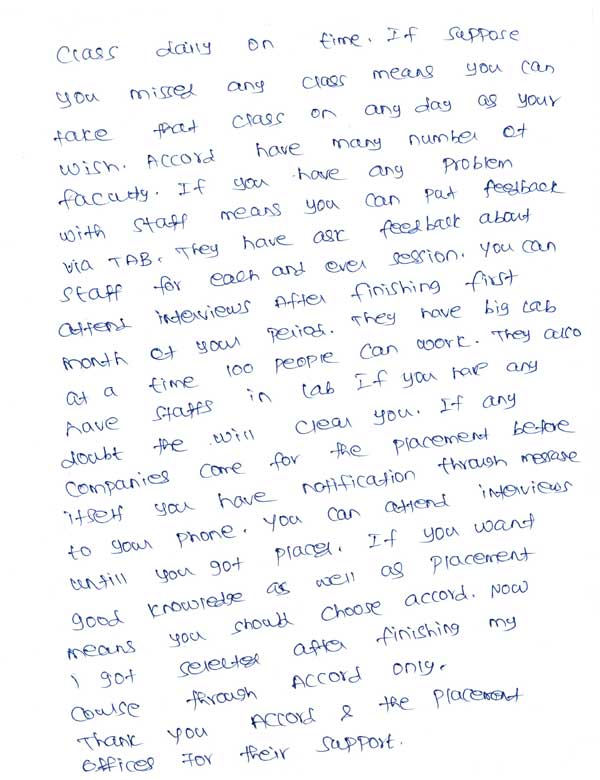 Class daily on time. If suppose
you missed any class means you can
take that class on any day as your
wish. Accord have many number of
faculty. If you have any problem
with staff means you can put feedback
via TAB. They have ask feedback about
staff for each and ever session. you can
attend interviews After finishing first
month of your period. They have big lab
at a time 100 people can work. They also
have staffs in lab If you have any
doubt the will clear you. If any
companies come for the placement before
itself you have notification through message
to your phone. You can attend interviews
untill you got placed. If you want
good knowledge as well as placement
means you should choose accord. Now
I got selected after finishing my
course through Accord only.
Thank you Accord & the placement
offices For their support.